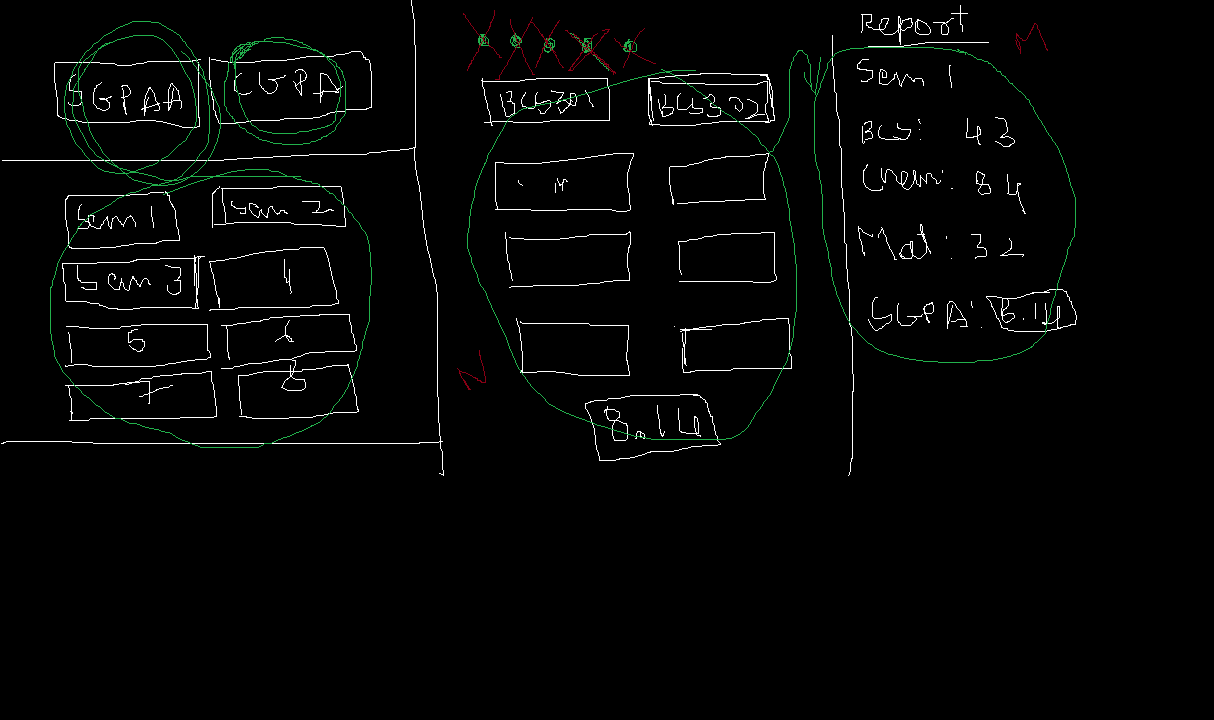 SGPAA CGPA
Sem 1 Sem 2
Sem 3 4
5 6
7 8
BCS301 BCS302
8.14
Report
Sem 1
BCS: 43
Chem: 84
Mat: 32
SGPA: 8.14